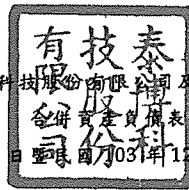 泰博科
技股份
有限公司
科技股份有限公司及
合併資產負債表
日暨民國103年12